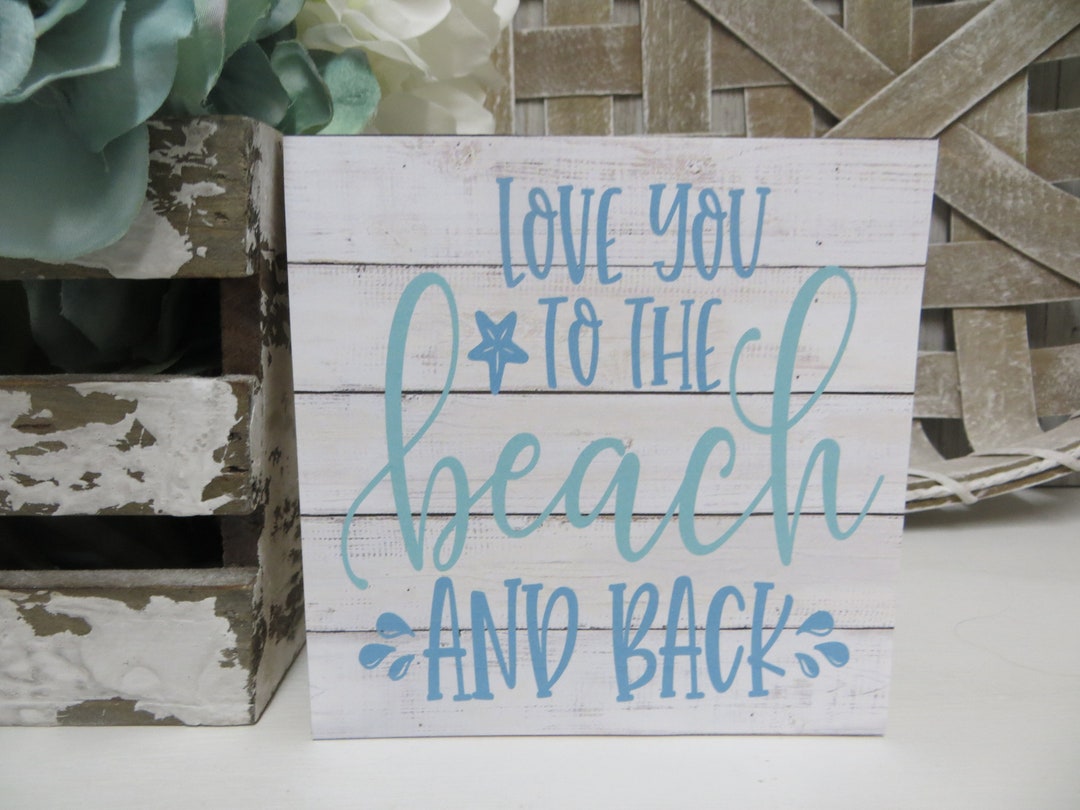 LOVE YOU
TO THE
beach
AND BACK